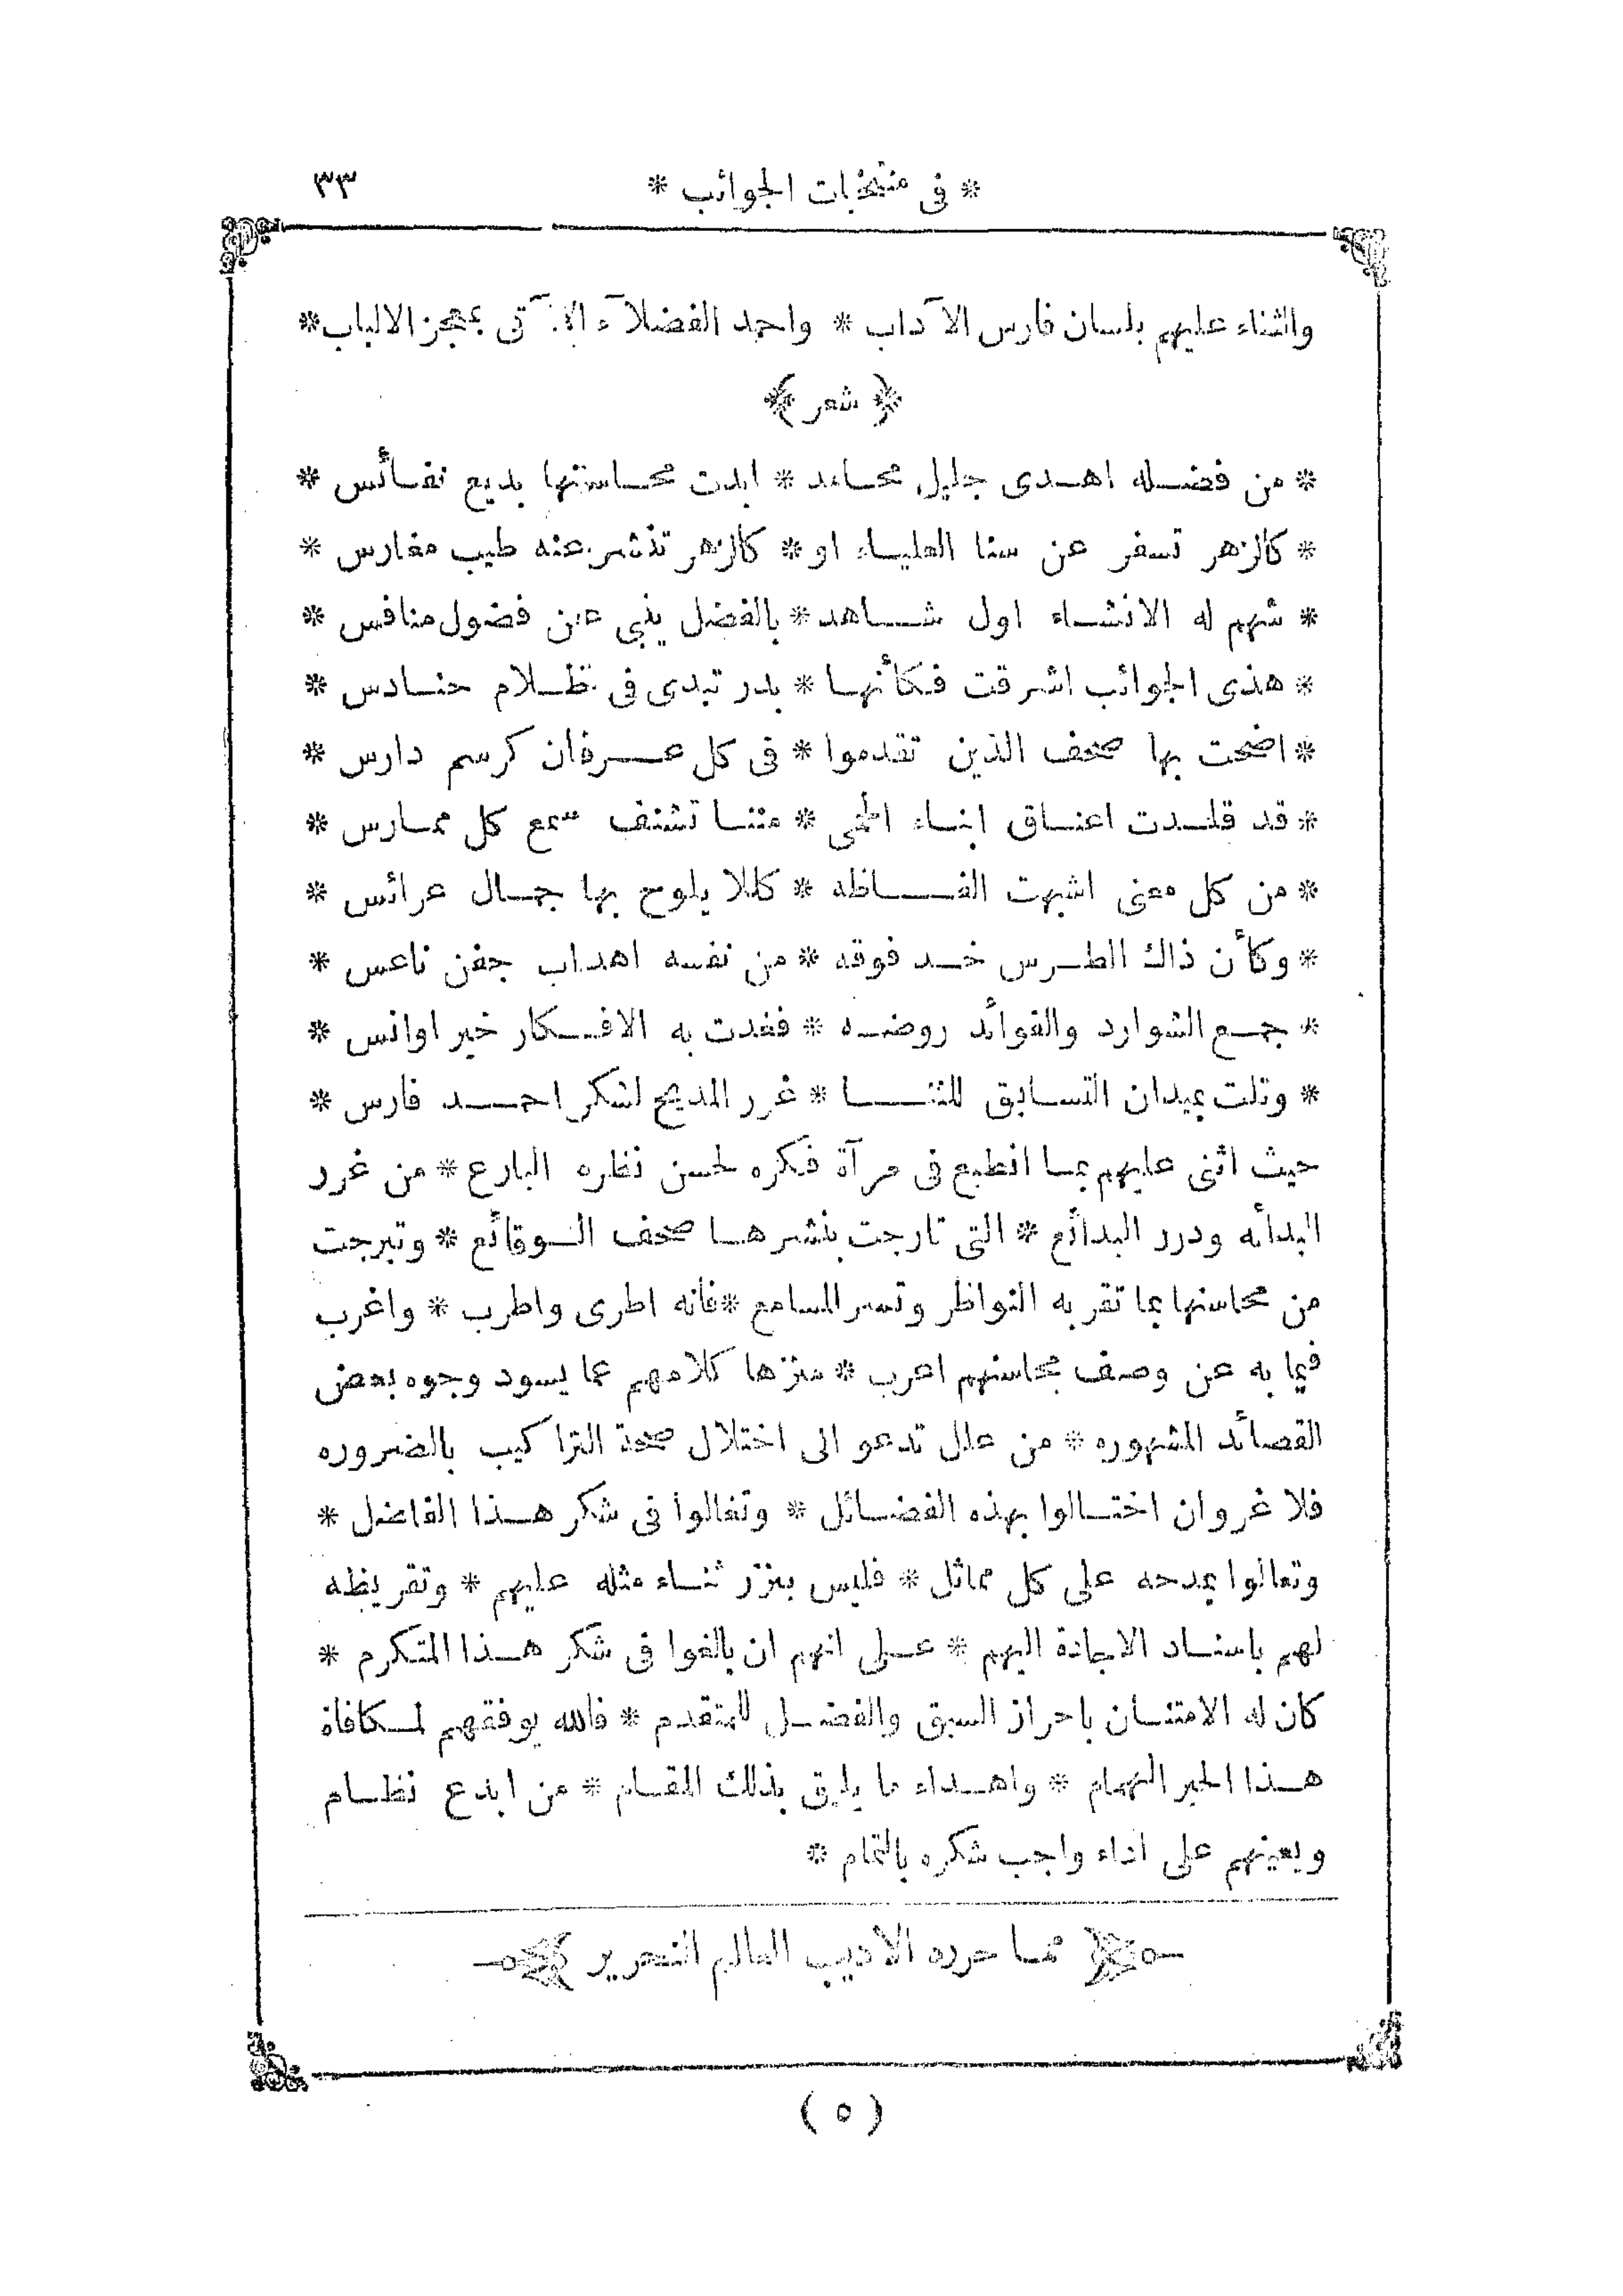 * فى منتخبات الجوائب * ٣٣
والثناء عليهم بلسان فارس الآداب * واحمد الفضلآء الآتى بمعجز الالباب *
﴿ شعر ﴾
* من فضله اهدى جليل محامد * ابدت محاسنها بديع نفائس *
* كالزهر تسفر عن سنا العلياء او * كالزهر تنشر عنه طيب مغارس *
* شهم له الانشاء اول شاهد * بالفضل ينبى عن فضول منافس *
* هذى الجوائب اشرقت فكأنها * بدر تبدى فى ظلام حنادس *
* اضحت بها صحف الذين تقدموا * فى كل عرفان كرسم دارس *
* قد قلدت اعناق ابناء الحمى * مننا تشنف سمع كل ممارس *
* من كل معنى اشبهت الفاظه * كللا يلوح بها جمال عرائس *
* وكأن ذاك الطرس خد فوقه * من نفسه اهداب جفن ناعس *
* جمع الشوارد والفوائد روضه * فغدت به الافكار خير اوانس *
* وتلت بميدان التسابق للثنا * غرر المديح لشكر احمد فارس *
حيث اثنى عليهم بما انطبع فى مرآة فكره لحسن نظره البارع * من غرر
البدائه ودرر البدائع * التى تارجت بنشرها صحف الوقائع * وتبرجت
من محاسنها بما تقر به النواظر وتسر المسامع * فانه اطرى واطرب * واغرب
فيما به عن وصف محاسنهم اعرب * منزها كلامهم عما يسود وجوه بعض
القصائد المشهوره * من علل تدعو الى اختلال صحة التراكيب بالضروره
فلا غروان اختالوا بهذه الفضائل * وتغالوا فى شكر هذا الفاضل *
وتعالوا بمدحه على كل مماثل * فليس بنزر ثناء مثله عليهم * وتقريظه
لهم باسناد الاجادة اليهم * على انهم ان بالغوا فى شكر هذا المتكرم *
كان له الامتنان باحراز السبق والفضل للمتقدم * فالله يوفقهم لمكافاة
هذا الحبر الهمام * واهداء ما يليق بذلك المقام * من ابدع نظام
ويعينهم على اداء واجب شكره بالتمام *
مما حرره الاديب العالم النحرير
( ٥ )